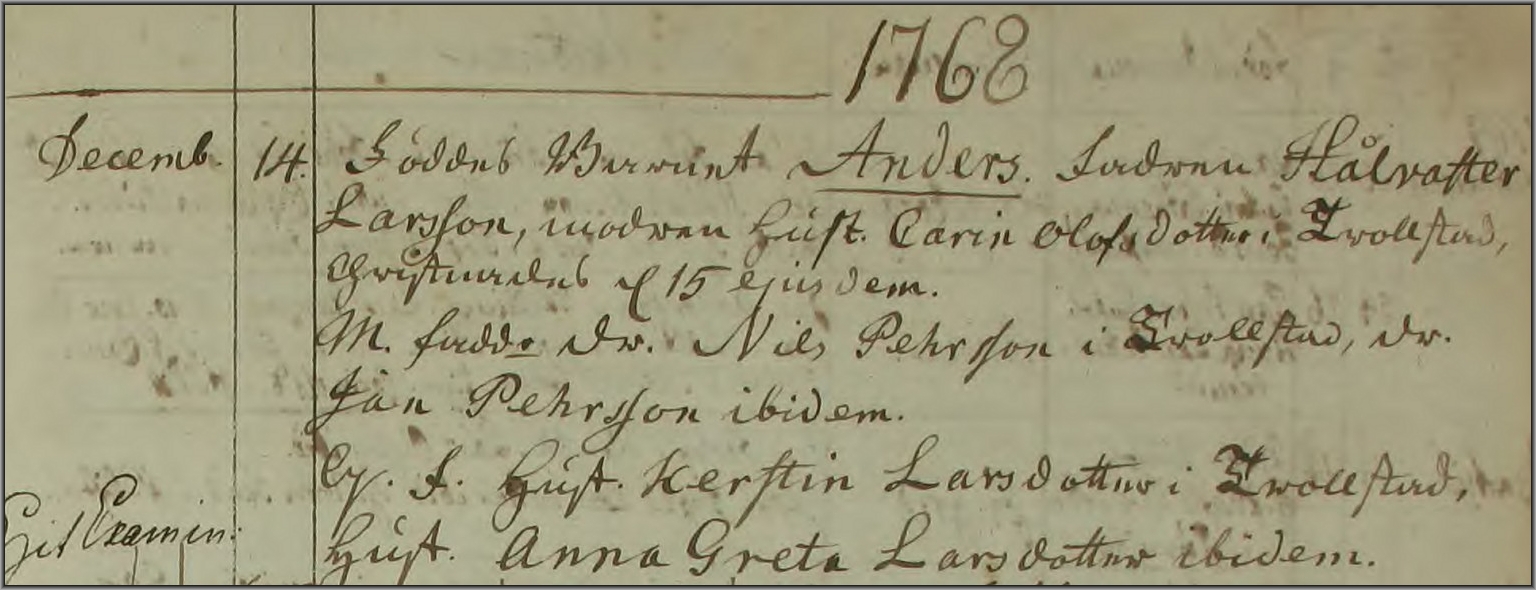 1768
Decemb. 14. Föddes Barnet Anders. fadren Hålvaster
Larsson, modren Hust. Carin Olofsdotter i Trollstad,
Christnades d 15 ejusdem.
M. fadd. dr. Nils Pehrsson i Trollstad, dr.
Jan Pehrsson ibidem.
Q. f. Hust. Kerstin Larsdotter i Trollstad,
Hit Examin: Hust. Anna Greta Larsdotter ibidem.